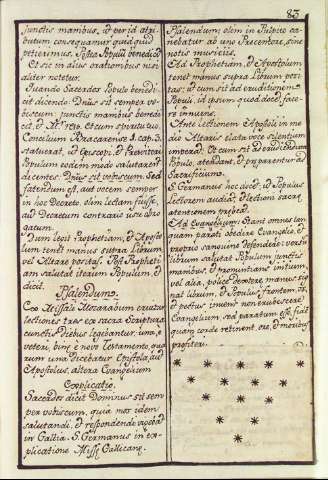 83
junctis manibus, et per id atri-
butum consequamur quidquid
petierimus. Postea Populū benedicit
Et sic in alijs orationibus nisi
aliter notetur.
Quando Sacerdos Populo benedi-
cit dicendo: Dñus sit semper vo-
biscum: junctis manibus benedi-
cit, et Et cum spiritu tuo.
Concilium Bracarense I. cap. 3.
statuerat, ut Episcopi, et Presbyteri
Populum eodem modo salutarent
dicentes: Dñus sit vobiscum. Sed
fatendum est, aut vocem semper
in hoc Decreto, olim lectam fuisse,
aut Decretum contrario usu abro-
gatum.
Dum legit Prophetiam, et Aposto-
lum tenet manus supra Librum
vel Altare positas. Post Propheti-
am salutat iterum Populum, et
dicit.
Psalendum.
Ex Missali Mozarabum
lectiones tres ex sacra Scriptura
cunctis diebus legebantur, una, e
veteri, binę, e novo Testamento, qua-
rum una dicebatur Epistola, aut
Apostolus, altera Evangelium
Explicatio.
Sacerdos dicit Dominus sit sem-
per vobiscum, quia mos idem
salutandi, et respondendi
in Gallia. S. Germanus in ex-
plicatione Missę Gallicanę.
Psalendum, olem in Pulpito ca-
nebatur ab uno Precentore, sine
notis musicis.
Ad Prophetiam, et Apostolum
tenet manus supra Librum posi-
tas; ut cum sit ad eruditionem
Populi, id ipsum quod docet, face-
re innuens.
Ante lectionem Apostoli in me-
dio Altaris elata voce silentium
imperat; Et cum sit ad audiendum
Populo, atendant, et prę parentur ad
Sacrificium.
S. Germanus hoc docet: ut Populus
Lectorem audiat, et lectioni sacrę
atentionem pręberet.
Ad Evangelium: Stant omnes tan-
quam parati obedire Evangelio, et
proprio sanguine defendere: versus
librum salutat Populum junctis
manibus, et pronuntians initium,
vel alia, police dextere manus sig-
nat librum, et Populus frontem, os,
et pectus innuens non erubescere
Evangelium, sed paratum esse fidē
quam corde retinent ore, et moribus
profiteri.